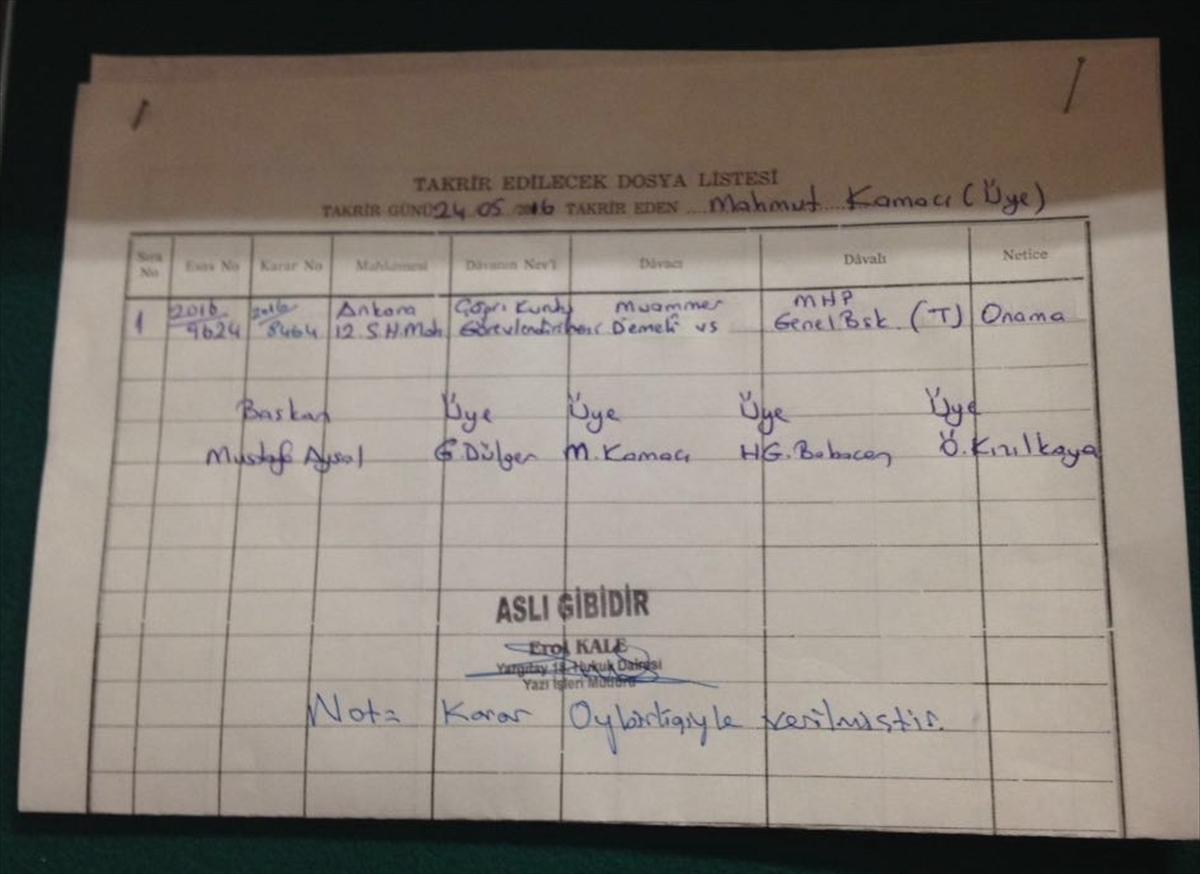 TAKRİR EDİLECEK DOSYA LİSTESİ
TAKRİR GÜNÜ 24 05 2016 TAKRİR EDEN Mahmut Kamacı (Üye)
Sıra No Esas No Karar No Mahkemesi Dâvanın Nev'i Dâvacı Dâvalı Netice
1 2016/9624 2016/8464 Ankara 12. S.H.Mah. Muammer vs MHP Genel Bşk. (T) Onama
Başkan Üye Üye Üye Üye
Mustafa Aysal G. Dülger M. Kamacı HG. Babacan Ö. Kızılkaya
ASLI GİBİDİR
Erol KALE
Yargıtay 18. Hukuk Dairesi
Yazı İşleri Müdürü
Not: Karar Oybirliğiyle verilmiştir.